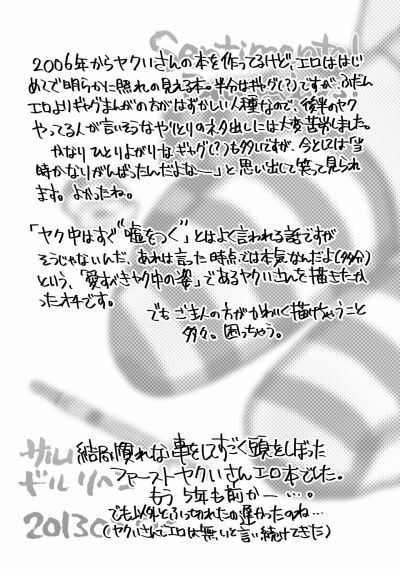 Sentimental
2006年からヤクいさんの本を作ってるけど、エロははじ
めてで明らかに照れの見える本。半分はギャグ(?)ですが、ふだん
エロよりギャグまんがの方がはずかしい人種なので、後半のヤク
やってる人が言いそうなやりとりのネタ出しには大変苦労しました。
かなりひとりよがりなギャグ(?)も多いですが、今となっては「当
時かなりがんばったんだよな――」と思い出して笑って見られ
ます。よかったね。
「ヤク中はすぐ“嘘をつく”」とはよく言われる話ですが
そうじゃないんだ、あれは言った時点では本気なんだよ(多分)
という、「愛すべきヤク中の姿」であるヤクいさんを描きたか
った本です。
でもご主人の方がかわいく描けちゃうこと
多々。困っちゃう。
結局慣れない事をしてすごく頭をしぼった
ファーストヤクいさんエロ本でした。
もう5年も前か―…。
でも以外とふっ切れたの遅かったのね…
(ヤクいさんでエロは無いと言い続けてきた)
サルい
ギルリヘン
2013